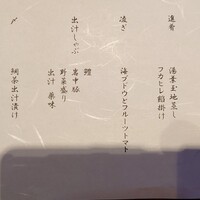 進肴
湯葉玉地蒸し
フカヒレ餡掛け
凌ぎ
海ブドウとフルーツトマト
出汁しゃぶ
鰹
島中豚
野菜盛り
出汁 薬味
〆
鯛茶出汁漬け